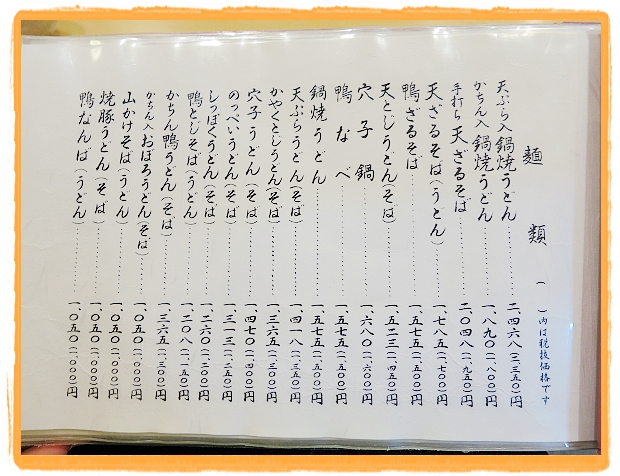 麺類 （ ）内は税抜価格です
天ぷら入鍋焼うどん………二、四六八（二、三五〇）円
かちん入鍋焼うどん………一、八九〇（一、八〇〇）円
手打ち天ざるそば………二、〇四八（一、九五〇）円
天ざるそば（うどん）………一、七八五（一、七〇〇）円
鴨ざるそば………一、五七五（一、五〇〇）円
天とじうどん（そば）………一、五二三（一、四五〇）円
穴子鍋………一、六八〇（一、六〇〇）円
鴨なべ………一、五七五（一、五〇〇）円
鍋焼うどん………一、五七五（一、五〇〇）円
天ぷらうどん（そば）………一、四一八（一、三五〇）円
かやくとじうどん（そば）………一、三六五（一、三〇〇）円
穴子うどん（そば）………一、四七〇（一、四〇〇）円
のっぺいうどん（そば）………一、三一三（一、二五〇）円
しっぽくうどん（そば）………一、二六〇（一、二〇〇）円
鴨とじそば（うどん）………一、二〇八（一、一五〇）円
かちん鴨うどん（そば）………一、三六五（一、三〇〇）円
かちん入おぼろうどん（そば）………一、〇五〇（一、〇〇〇）円
山かけそば（うどん）………一、〇五〇（一、〇〇〇）円
焼豚うどん（そば）………一、〇五〇（一、〇〇〇）円
鴨なんば（うどん）………一、〇五〇（一、〇〇〇）円